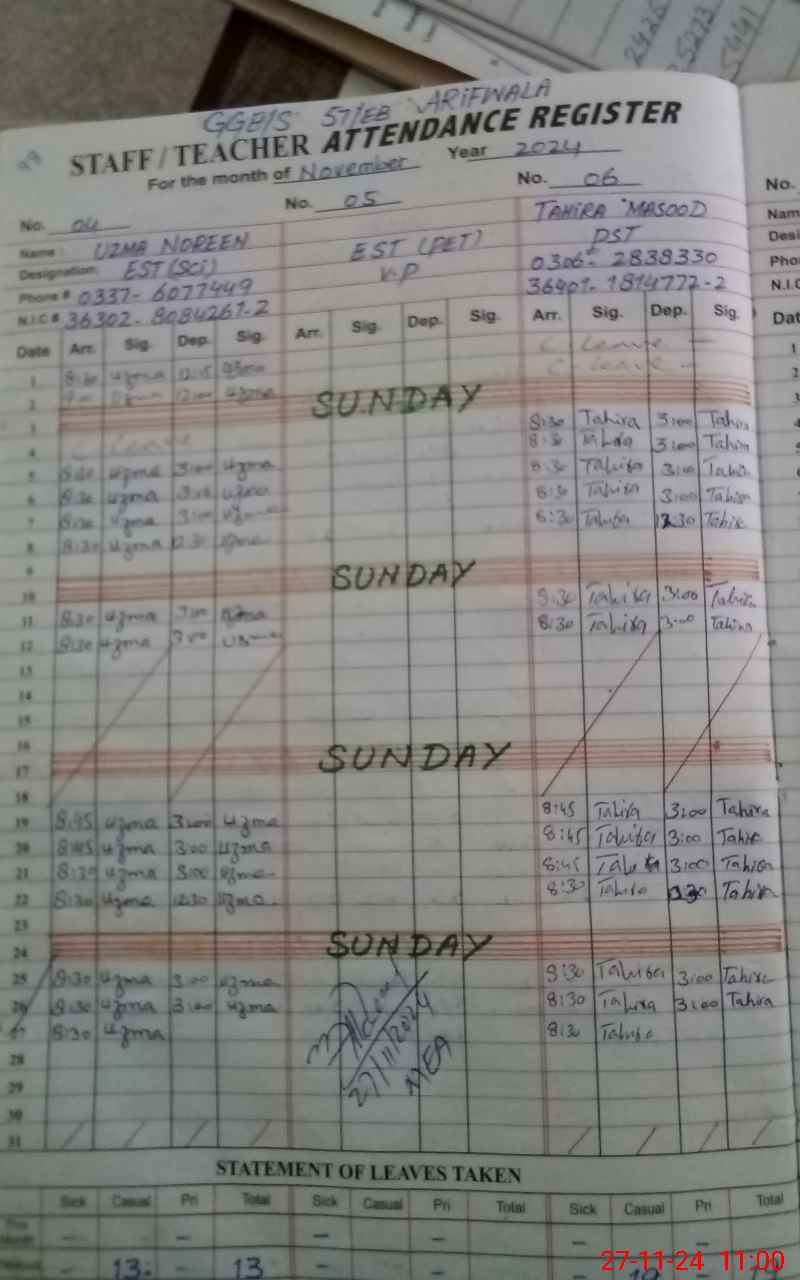 2425
5223
5441
GGE/S 57/EB ARIFWALA
STAFF / TEACHER ATTENDANCE REGISTER
For the month of November Year 2024
No. 04 No. 05 No. 06 No.
Name : UZMA NOREEN TAHIRA MASOOD Nam
Designation: EST (SCi) EST (PET) PST Desi
Phone # 0337-6077449 V.P 0306- 2838330 Pho
N.I.C # 36302-8084261-2 36401-1814772-2 N.I.C
Date Arr. Sig. Dep. Sig. Arr. Sig. Dep. Sig. Arr. Sig. Dep. Sig. Dat
1 8:30 uzma 12:15 uzma C leave 1
2 uzma 12:00 uzma C leave 2
3 SUNDAY 3
4 C leave 8:30 Tahira 3:00 Tahira
5 8:30 uzma 3:00 uzma 8:30 Tahira 3:00 Tahira
6 8:30 uzma 3:00 uzma 8:30 Tahira 3:00 Tahira
7 8:30 uzma 3:00 uzma 8:30 Tahira 3:00 Tahira
8 8:30 uzma 12:30 uzma 8:30 Tahira 12:30 Tahira
9
10 SUNDAY
11 8:30 uzma 3:00 uzma 8:30 Tahira 3:00 Tahira
12 8:30 uzma 3:00 uzma 8:30 Tahira 3:00 Tahira
13
14
15
16
17 SUNDAY
18
19 8:45 uzma 3:00 uzma 8:45 Tahira 3:00 Tahira
20 8:45 uzma 3:00 uzma 8:45 Tahira 3:00 Tahira
21 8:30 uzma 3:00 uzma 8:45 Tahira 3:00 Tahira
22 8:30 uzma 12:30 uzma 8:30 Tahira Tahira
23
24 SUNDAY
25 8:30 uzma 3:00 uzma 8:30 Tahira 3:00 Tahira
26 8:30 uzma 3:00 uzma 8:30 Tahira 3:00 Tahira
27 8:30 uzma 8:30 Tahira
27/11/2024
MEA
28
29
30
31
STATEMENT OF LEAVES TAKEN
Sick Casual Pri Total Sick Casual Pri Total Sick Casual Pri Total
This Month - - - - - -
13 - 13 - -
27-11-24 11:00